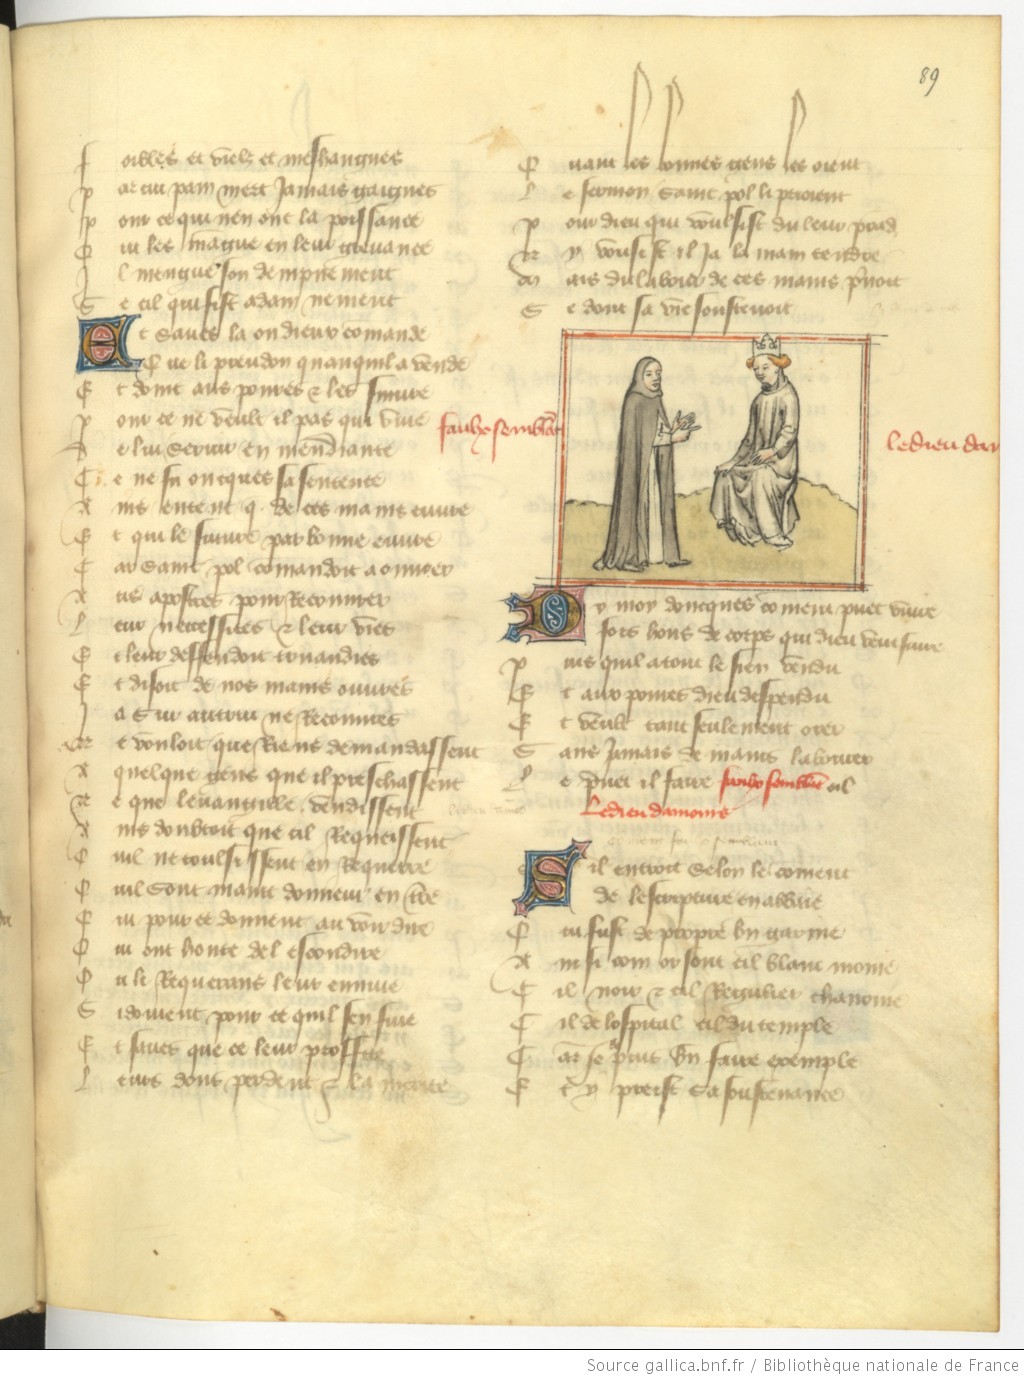 89
f oibles et vielz et meshangnes
p ar cui pain niert jamais gaignes
p our ce qui nen ont la poissance
Q ui les mangue en leur grevance
I l mengue son dampnement
S e cil qui fist adam ne ment
Et saves la on dieux comande
Que li preudon quanquil a vende
E t doint aus poures et les sinure
p our ce ne veult il pas qui vive
D e lui servir en mendiante
C e ne fu oncques sa sentence
A ins entent q. de ces mains euvre
E t qui le suive par bonne euvre
C ar saint pol comandoit a ouvrer
A us apostres pour recouvrer
l eur necessites et leur vies
E t leur deffendoit truandies
E t disoit de nos mains ouvres
J a sur autrui ne recouvres
N e vouloit que riens demandassent
A quelque gens que il preschassent
N e que levangille vendissent
A ins doubtoit que cil requeissent
Q uil ne tousissent en requerre
Q uil sont maint donneur en t̄re
Q ui pour ce donnent au voir dire
Q u ont honte de lescondire
O u li requerans leur ennuie
S i donnent pour ce quil sen fuie
E t saves que ce leur proffite
l eurs dons perdent et la merite
Q uant les bonnes gens les oient
l e sermon saint pol li prioient
p our dieu qui voulsist du leur prend
N y vousist il ja la main tendre
M ais du labour de ces mains prenoit
C e dont sa vie soustenoit
faulx semblāt
le dieu dam
Dy moy doncques coment puet vivre
fors hons de corps qui dieu veut suivre
p uis quil a tout le sien vendu
E t aux poures dieu despendu
E t veult tant seulement orer
S ans jamais de mains labourer
l e puet il faire faulx semblāt oil
Le dieu damours
Sil entroit selon le coment
de lescripture en abbaie
Q ui fust de propre bn garnie
A insi com or sont cil blanc moine
C il noir et cil regulier chanoine
C il de lospital cil du temple
C ar je puis bn faire exemple
E t y preist sa soustenance
Source gallica.bnf.fr / Bibliothèque nationale de France